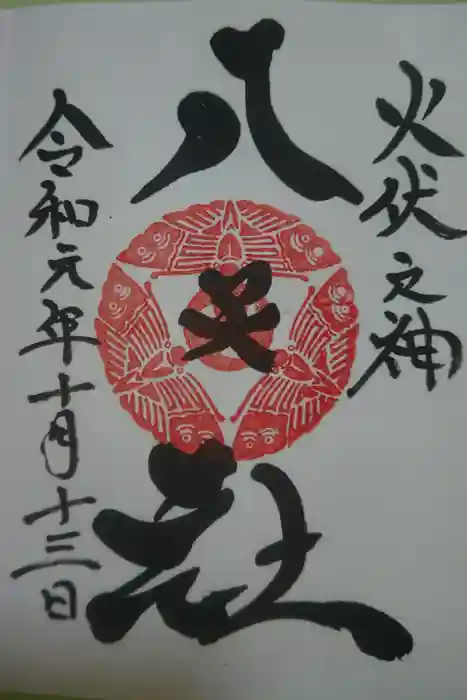 火伏之神
八天社
令和元年十月十三日